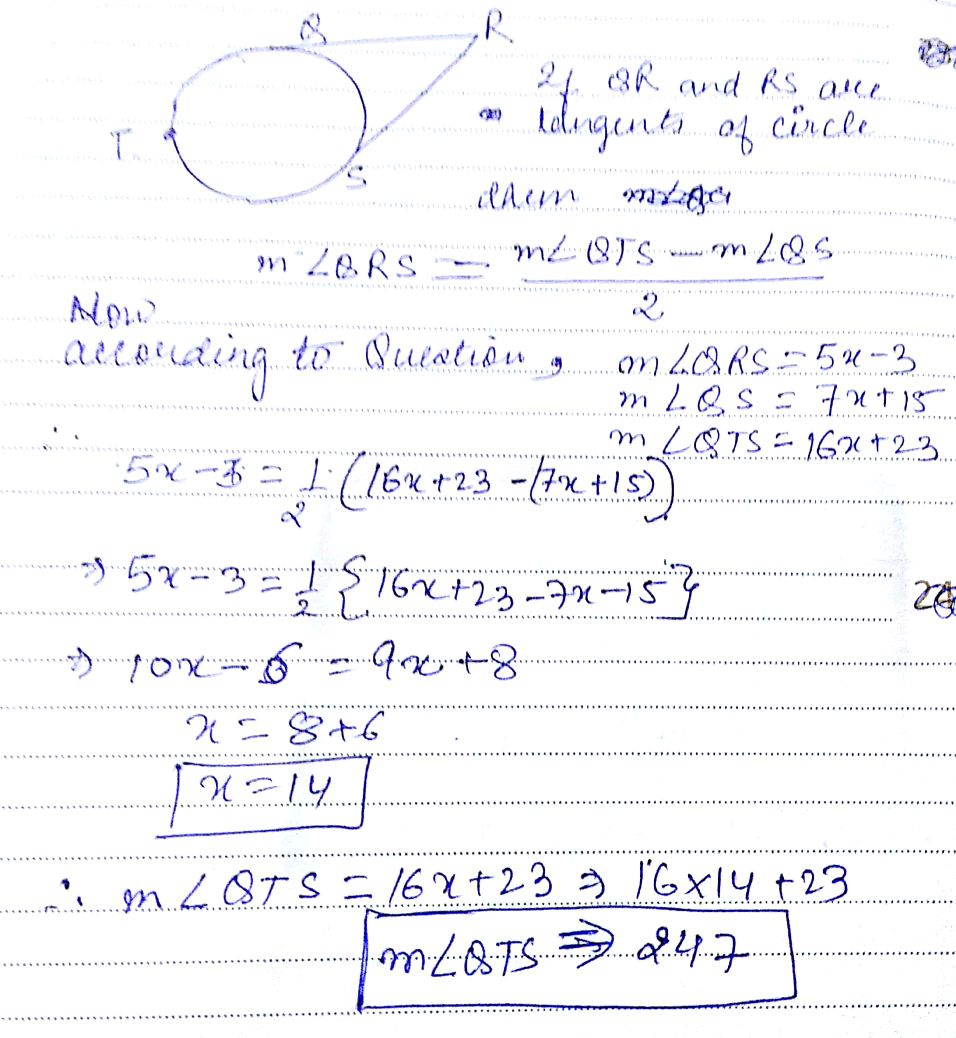 Q
R
If QR and RS are
tangents of circle
T
S
then
m∠QRS = (m∠QTS - m∠QS)/2
Now
according to Question, m∠QRS = 5x-3
m∠QS = 7x+15
m∠QTS = 16x+23
∴ 5x-3 = 1/2 (16x+23-(7x+15))
⇒ 5x-3 = 1/2 {16x+23-7x-15}
⇒ 10x-6 = 9x+8
x = 8+6
x=14
∴ m∠QTS = 16x+23 ⇒ 16×14+23
m∠QTS ⇒ 247